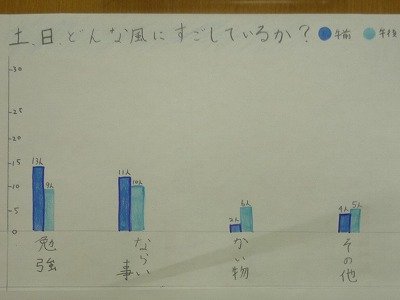 土、日、どんな風にすごしているか？ 午前 午後
30
25
20
15
10
5
0
13人 9人 11人 10人 2人 6人 4人 5人
勉強
ならい事
かい物
その他